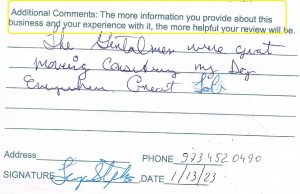 Additional Comments: The more information you provide about this
business and your experience with it, the more helpful your review will be.
The Gentalmen were great
moving Considering my Dog
Everywhere. Great Job
Address
PHONE 973 452 0490
SIGNATURE DATE 1/13/23